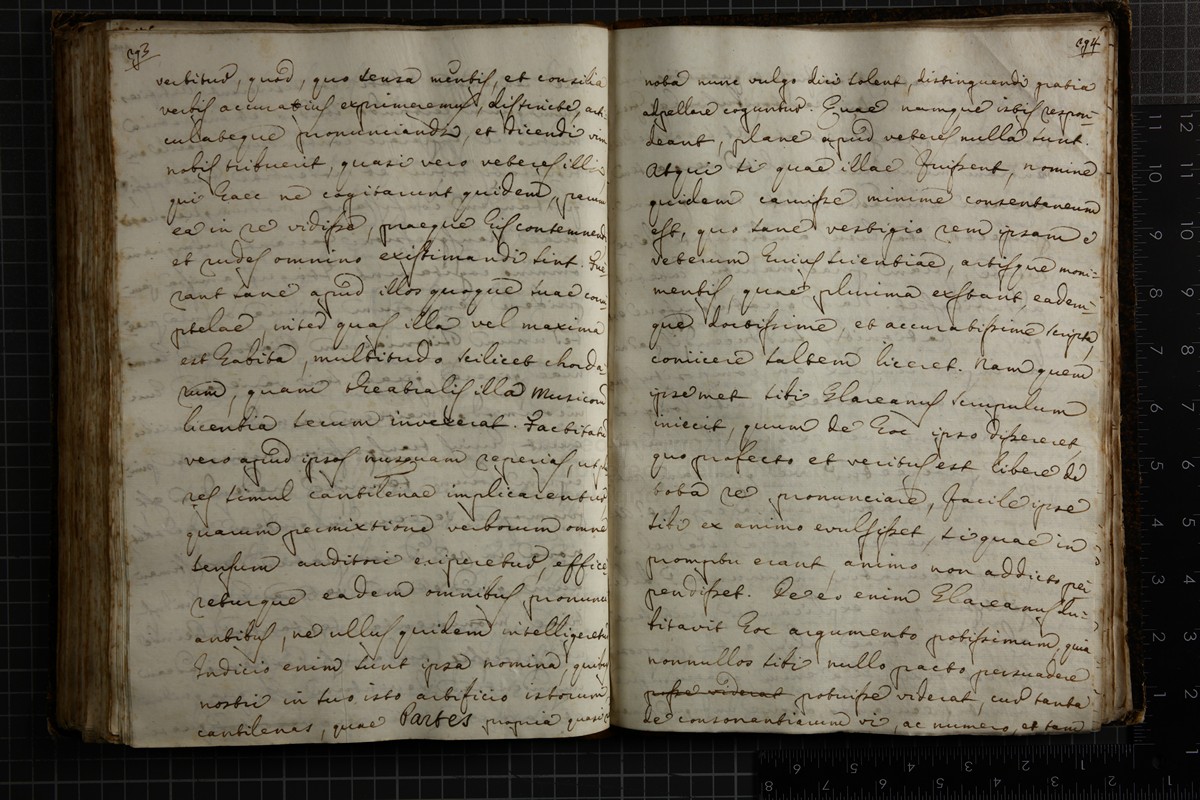 393
verbitur, quod, quo sensa mentis, et consilia
verbis accuratius exprimeremus, distincte, arti-
culateque pronunciandi, et dicendi vim
nobis tribuerit, quasi vero veteres illi,
qui haec ne cogitarunt quidem, parum
ea in re vidisse, praeque his contemnendi
et rudes omnino existimandi sint. Fue-
rant sane apud illos quoque suae corru
ptelae, inter quas illa vel maxima
est habita, multitudo scilicet chorda
rum, quam theatralis illa Musicorum
licentia secum invexerat. Factitatum
vero apud ipsos nusquam reperias, ut
res simul cantilenae implicarentur
quarum permixtione verborum omnis
sensum auditori eriperetur, effice-
returque eadem omnibus pronunci
antibus, ne ullus quidem intelligeretur
Indicio enim sunt ipsa nomina, quibus
nostri in suo isto artificio istorum
cantilenas, quae Partes propria quasi
394
nota nunc vulgo dici solent, distinguendi gratia
appellare coguntur. Quae namque istis respon-
deant, plane apud veteres nulla sunt.
Atqui si quae illae fuissent, nomine
quidem caruisse minime consentaneum
est, quo sane vestigio rem ipsam e
veterum huius scientiae, artisque moni-
mentis, quae plurima exstant, eadem
que doctissime, et accuratissime scripta,
coniicere saltem liceret. Nam quem
ipsemet sibi Glareanus scrupulum
iniecit, quum de hoc ipso dissereret,
quo profecto et veritus est libere de
tota re pronunciare, facile ipse
sibi ex animo evulsisset, si quae in
promptu erant, animo non addicto per
pendisset. De eo enim Glareanus du-
bitavit hoc argumento potissimum, quia
nonnullos sibi nullo pacto persuadere
posse viderat potuisse viderat, cur tanta
de consonantiarum vi, ac numero, et tam